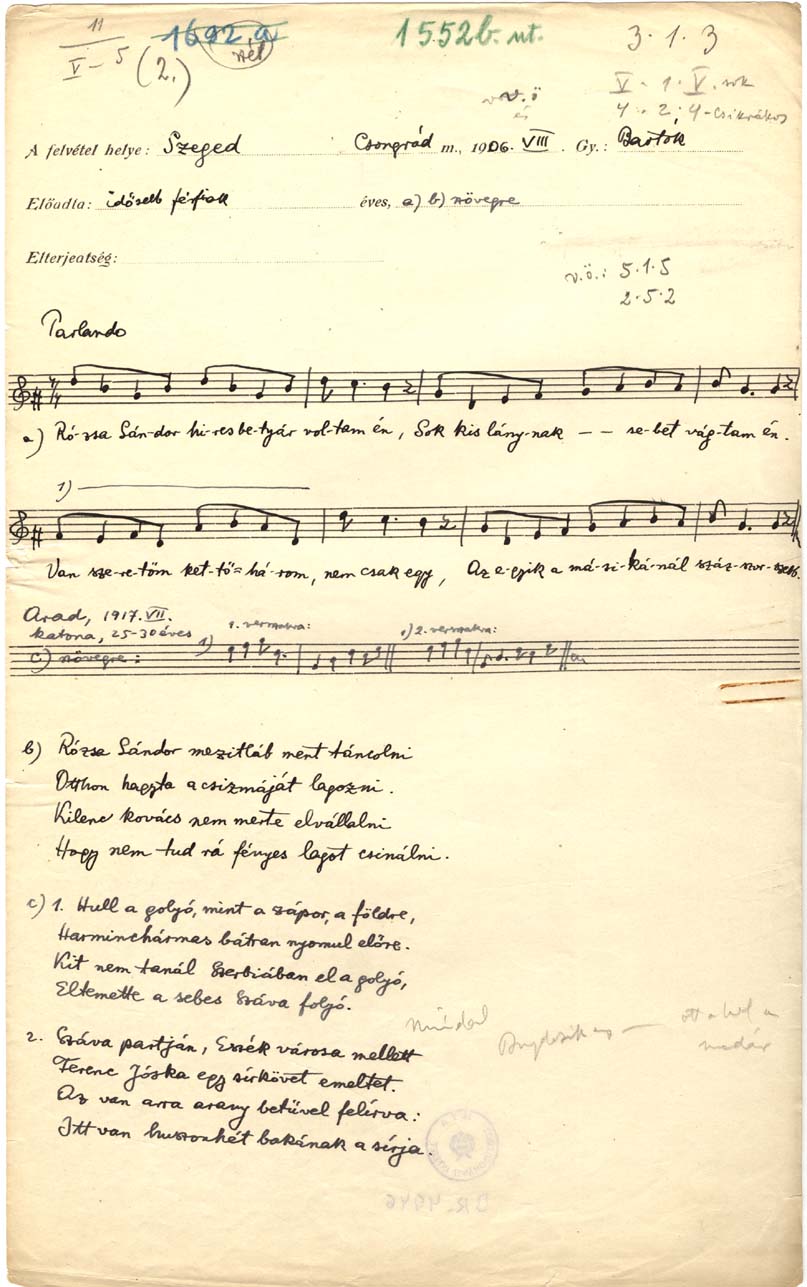 11
V - 5 (2.)
1692.a
1552b. nt.
3.1.3
V. 1. V. sok
4. 2; 4-Csikrákos
v.ö
és
A felvétel helye: Szeged Csongrád m., 1906. VIII. Gy.: Bartók
Előadta: idősebb férfiak éves, a) b) szövegre
Elterjeatség:
v.ö.: 5.1.5
2.5.2
Parlando
a) Ró-zsa Sán-dor hi-res be-tyár vol-tam én, Sok kis lány-nak — — se-bet vág-tam én.
1)
Van sze-re-tőm ket-tő-há-rom, nem csak egy, Az e-gyik a má-si-ká-nál száz-szor-szebb.
Arad, 1917. VII.
katona, 25-30 éves
c) szövegre: 1) 1. versszakra: 1) 2. versszakra:
b) Rózsa Sándor mezitláb ment táncolni
Otthon hagyta a csizmáját lagozni.
Kilenc kovács nem merte elvállalni
Hogy nem tud rá fényes lagot csinálni.
c) 1. Hull a golyó, mint a zápor, a földre,
Harminchármas bátran nyomul előre.
Kit nem tanál Szerbiában el a golyó,
Eltemette a sebes Száva folyó.
2. Száva partján, Eszék városa mellett
Ferenc Jóska egy sírkövet emeltet.
Az van arra arany betűvel felírva:
Itt van huszonhét bakának a sírja.
ott ahol a
madár
BR. 4946